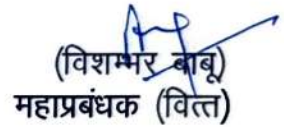 (विशम्भर बाबू)
महाप्रबंधक (वित्त)